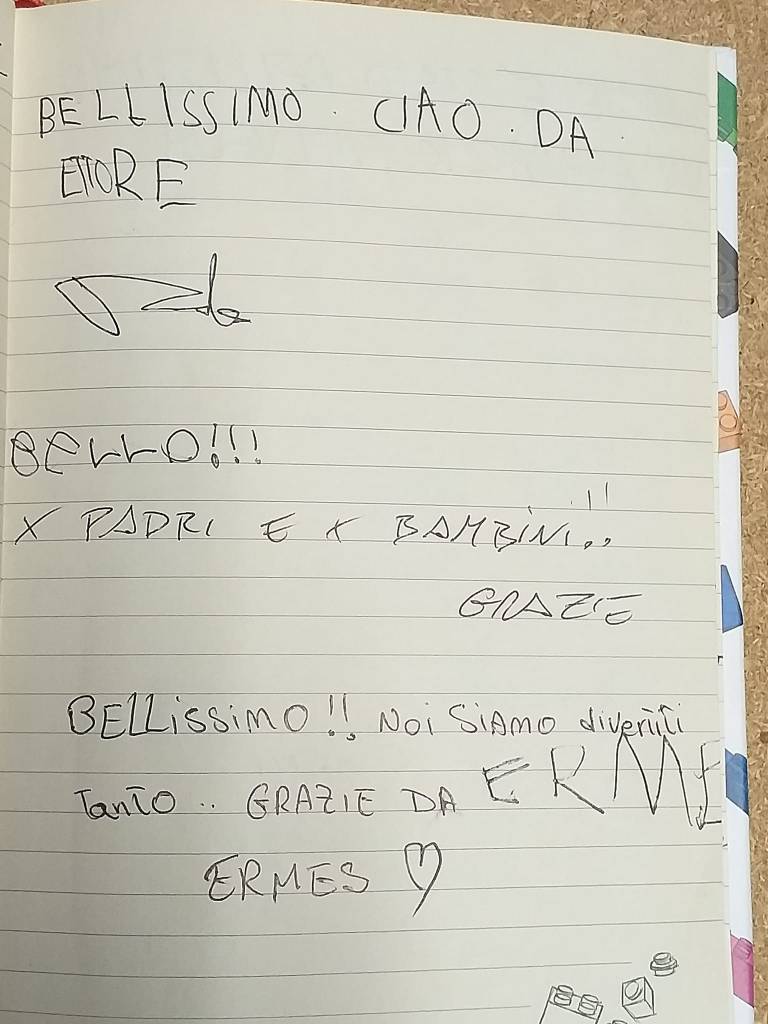 BELLISSIMO. CIAO. DA
ETTORE
BELLO!!!
X PADRI E X BAMBINI..!!
GRAZIE
BELLissimo!! Noi SiAMO divertiti
Tanto.. GRAZIE DA ERME
ERMES ♡